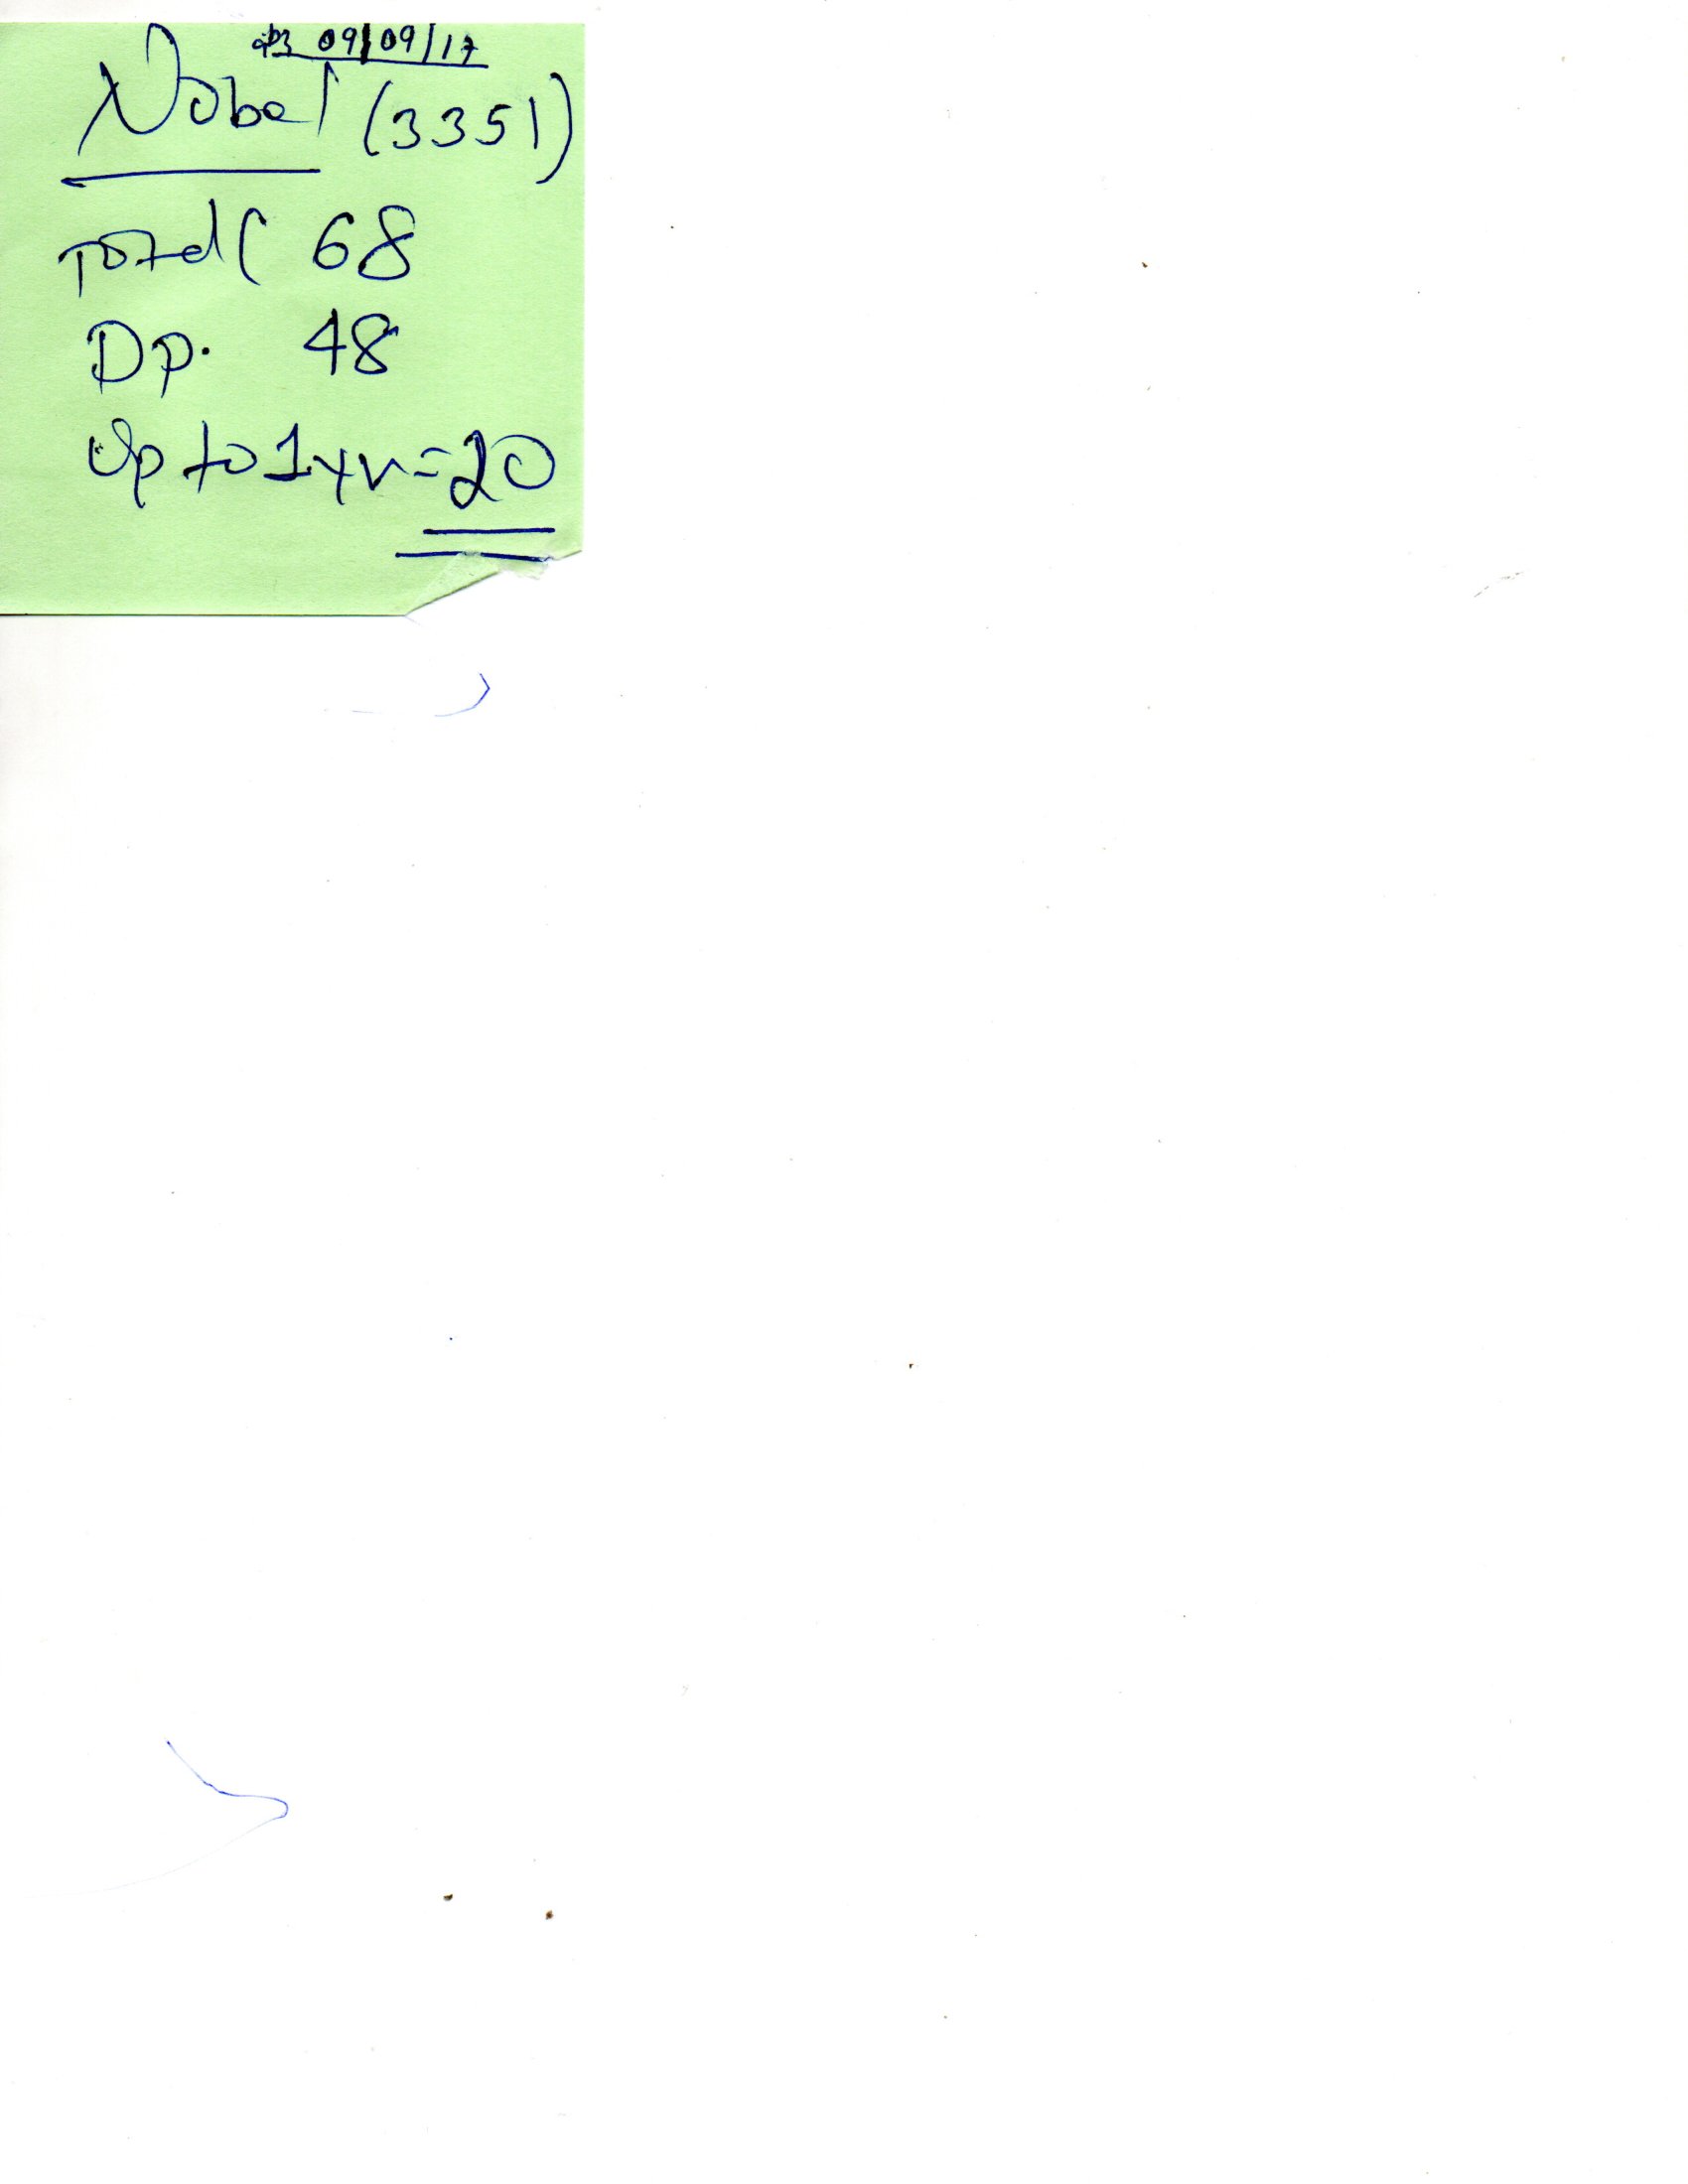 09/09/17
Nobel (3351)
Total 68
Dp. 48
Up to 1 yr = 20